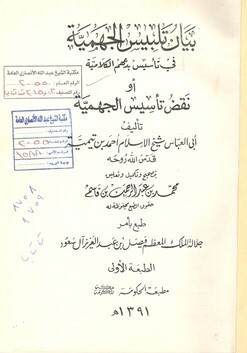 بيان تلبيس الجهمية
في تأسيس بدعهم الكلامية
أو
نقض تأسيس الجهمية
تأليف
أبي العباس شيخ الإسلام أحمد بن تيمية
قدس الله روحه
بتصحيح وتكميل وتعليق
محمد بن عبد الرحمن بن قاسم
حقوق الطبع محفوظة له
طبع بأمر
جلالة الملك المعظم فيصل بن عبد العزيز آل سعود
الطبعة الأولى
مطبعة الحكومة
١٣٩١هـ
مكتبة الشيخ عبد الله الأنصاري العامة
مكتبة الشيخ عبد الله الأنصاري العامة